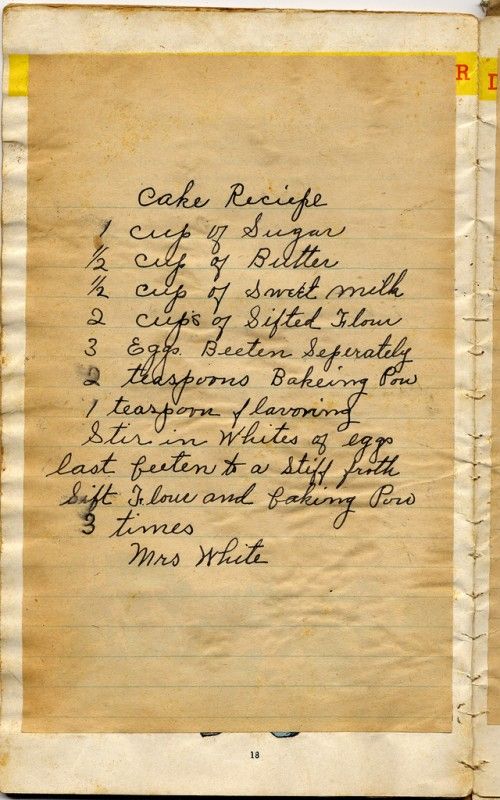 R
I
Cake Reciepe
1 cup of Sugar
1/2 cup of Butter
1/2 cup of Sweet milk
2 cups of Sifted Flour
3 Eggs Beeten Seperately
2 teaspoons Bakeing Pow
1 teaspoon flavoring
Stir in Whites of eggs
last beeten to a stiff froth
Sift Flour and baking Pow
3 times
Mrs White
18